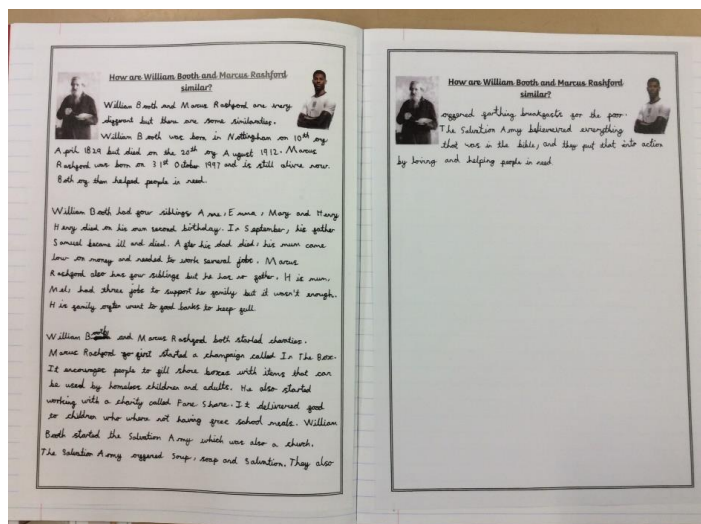 How are William Booth and Marcus Rashford
similar?
William Booth and Marcus Rashford are very
different but there are some similarities.
William Booth was born in Nottingham on 10th of
April 1829 but died on the 20th of August 1912. Marcus
Rashford was born on 31st October 1997 and is still alive now.
Both of them helped people in need.
William Booth had four siblings Anne, Emma, Mary and Henry
Henry died on his own second birthday. In September, his father
Samuel became ill and died. After his dad died, his mum came
low on money and needed to work several jobs. Marcus
Rashford also has four siblings but he has no father. His mum,
Mel, had three jobs to support her family but it wasn't enough.
His family often went to food banks to keep full.
William Booth and Marcus Rashford both started charities.
Marcus Rashford first started a champaign called In The Box.
It encourages people to fill shoe boxes with items that can
be used by homeless children and adults. He also started
working with a charity called Fare Share. It delivered food
to children who where not having free school meals. William
Booth started the Salvation Army which was also a church.
The Salvation Army offered Soup, soap and Salvation. They also
How are William Booth and Marcus Rashford
similar?
offered farthing breakfasts for the poor.
The Salvation Army believered everything
that was in the bible, and they put that into action
by loving and helping people in need